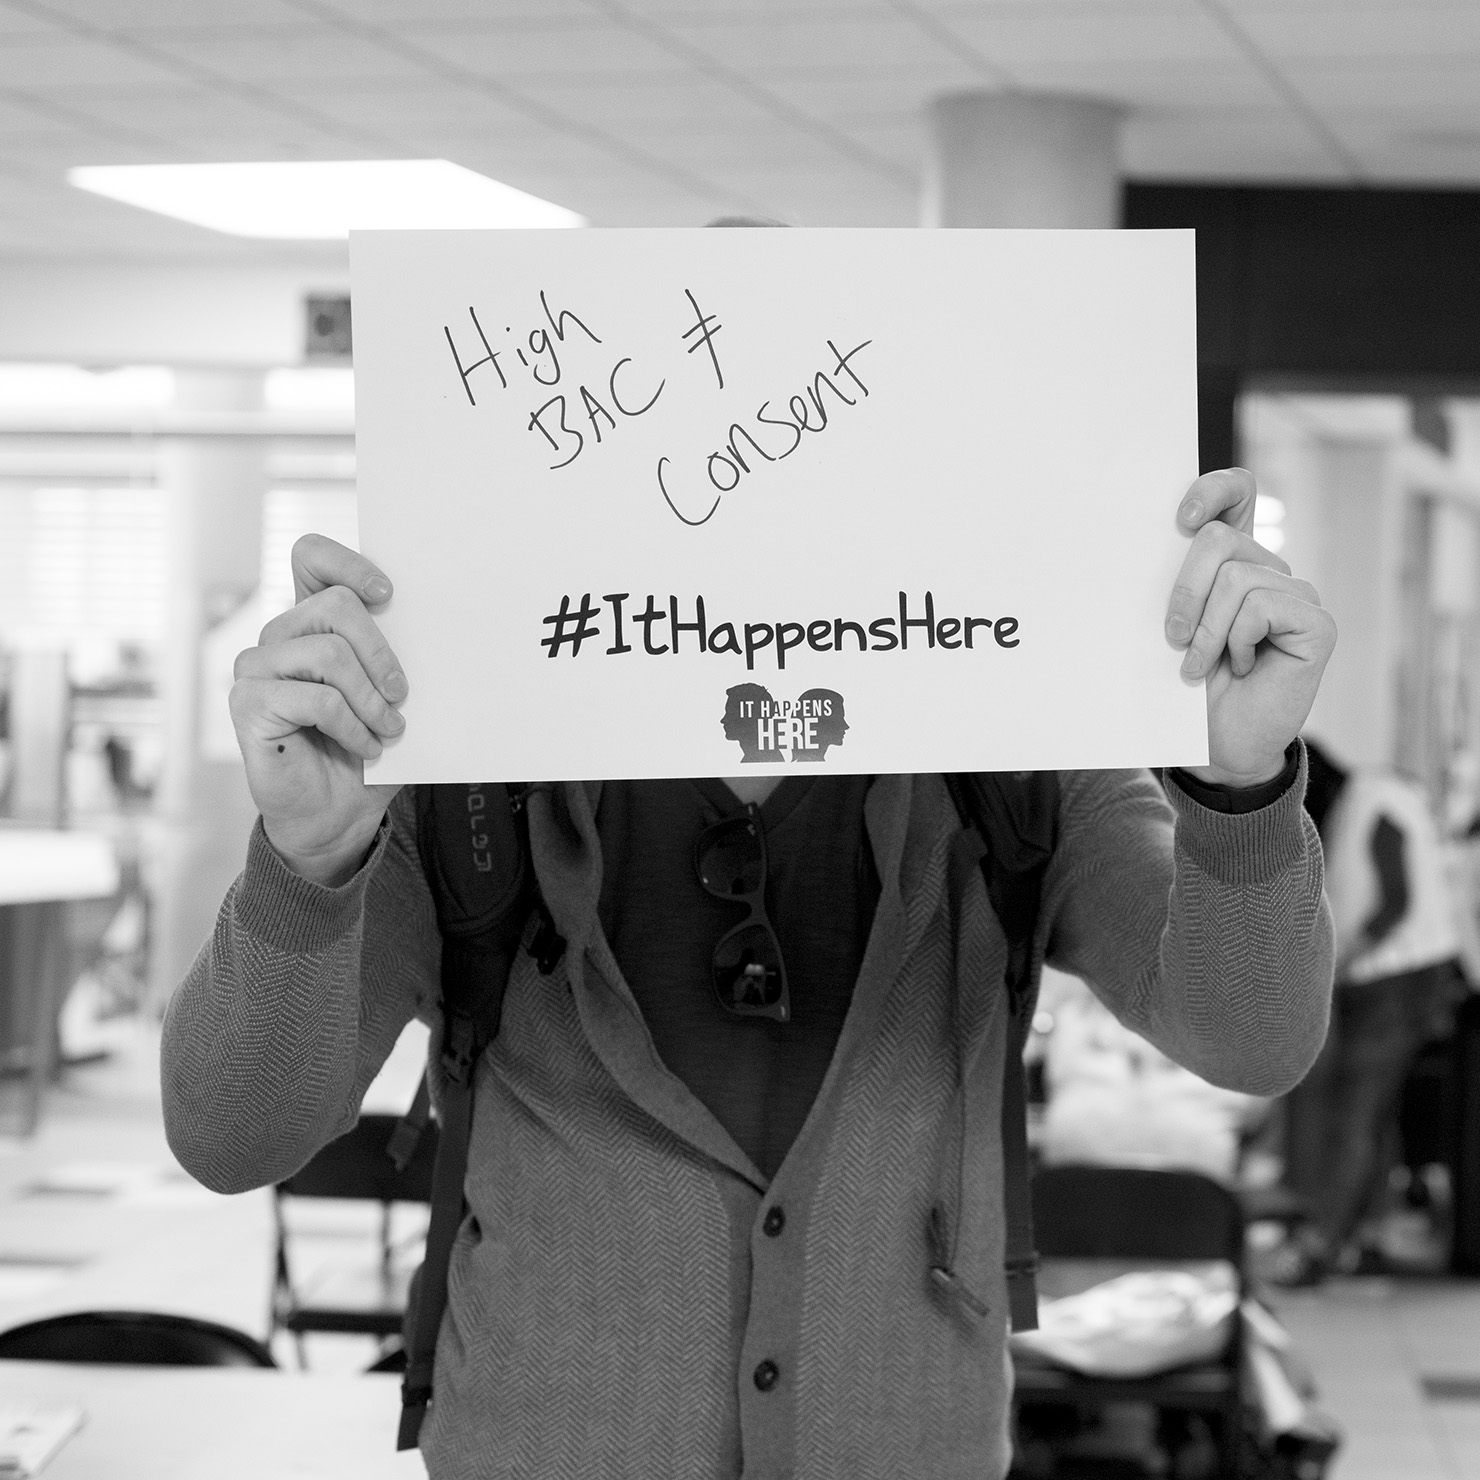 High
BAC ≠
Consent
#ItHappensHere
IT HAPPENS
HERE